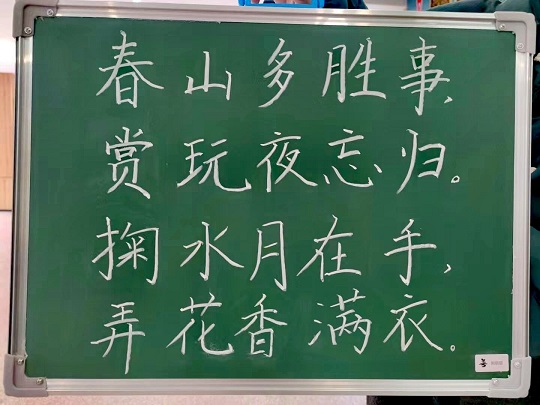 春山多胜事,
赏玩夜忘归。
掬水月在手,
弄花香满衣。